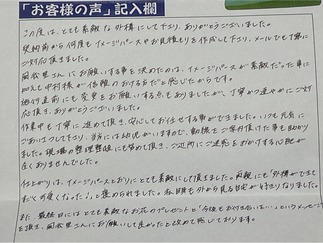 「お客様の声」記入欄
この度は、とても素敵な外構にして下さり、ありがとうございました。
契約前から何度もイメージパースやお見積りを作成して下さり、メールでも丁寧に
ご対応頂きました。
さんにお願いする事を決めたのは、イメージパースが素敵だった事に
加えて中村様が信頼のおける方だと感じたからです。
着工直前にも変更をお願いする点もありましたが、丁寧かつ速やかにご対
応頂き、ありがとうございました。
作業中も丁寧に進めて頂き、安心してお任せする事ができました。いつも元気に
ごあいさつして下さり、当方には幼児がいますので、動線をご案内頂けた事も助かり
ました。現場の整理整頓にも努めて頂き、ご近所にご迷惑をおかけする心配が
全くありませんでした。
仕上がりは、イメージパースとおりにとても素敵にして頂きました。両親にも「外構ができて
すごく可愛くなった」と褒められました。私自身も外から見る自宅が
また、最終日にはとても素敵なお花のプレゼントと「今後もお付き合いは…」というメッセージ
を頂き、さんにお願いして良かったと改めて感じております。